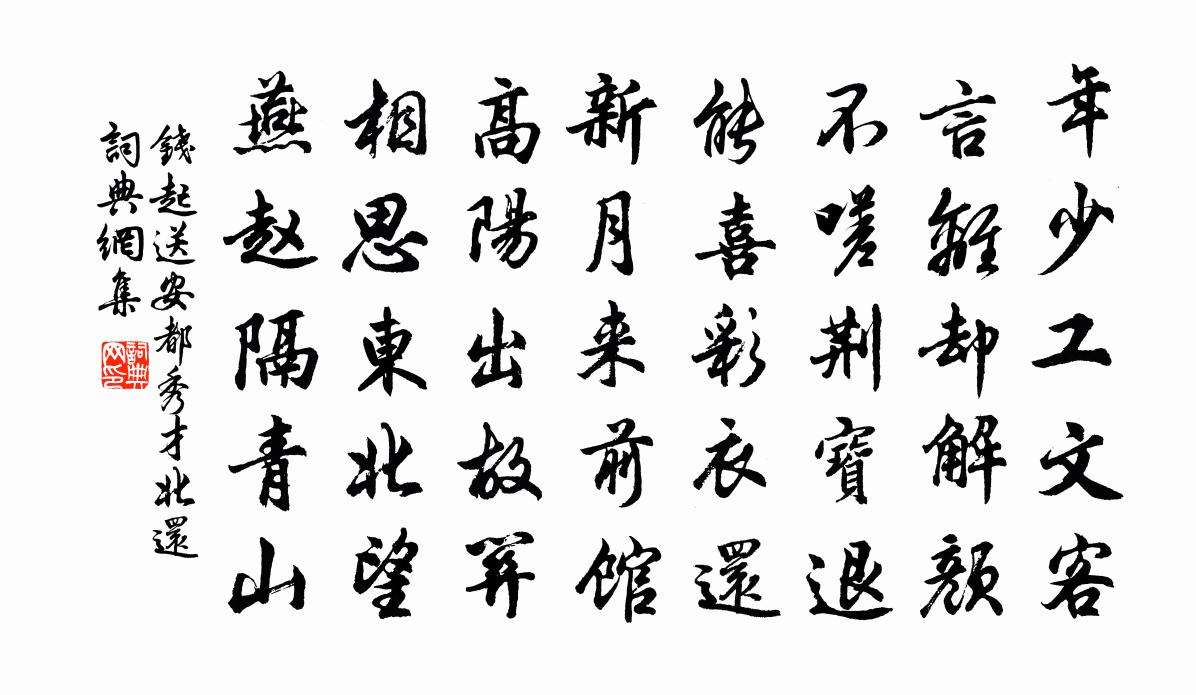 年少工文客
言離却解顏
不嗟荆寶退
能喜彩衣還
新月来前館
高陽出故關
相思東北望
燕趙隔青山
錢起送安都秀才北還
詞典網集
詞典网印